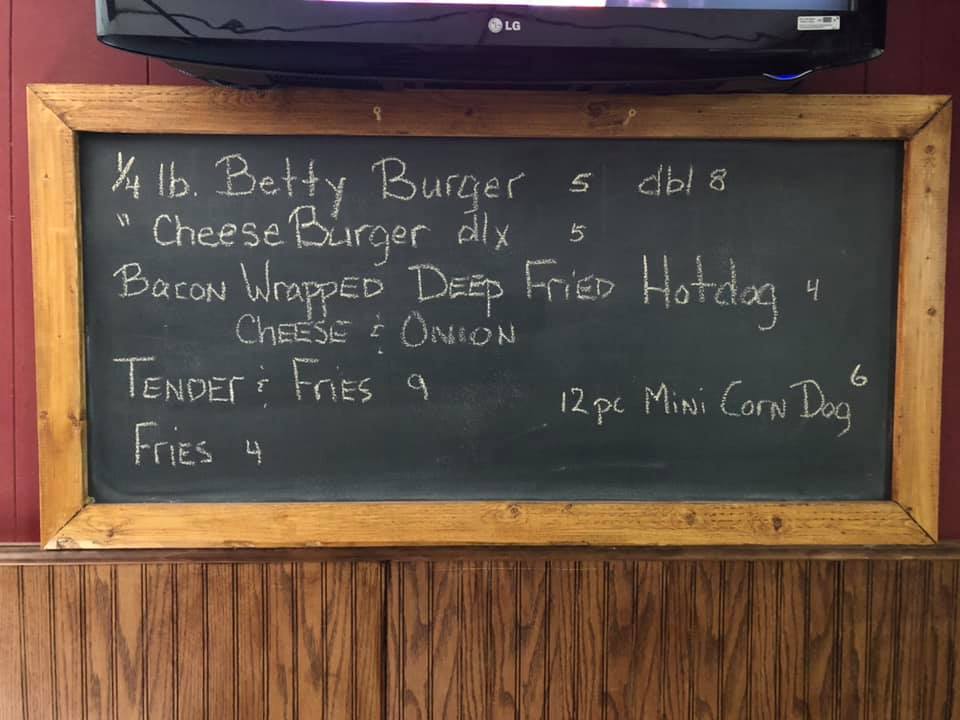 LG
1/4 lb. Betty Burger 5 dbl 8
" Cheese Burger dlx 5
Bacon Wrapped Deep Fried Hotdog 4
Cheese & Onion
Tender & Fries 9
12pc Mini Corn Dog 6
Fries 4